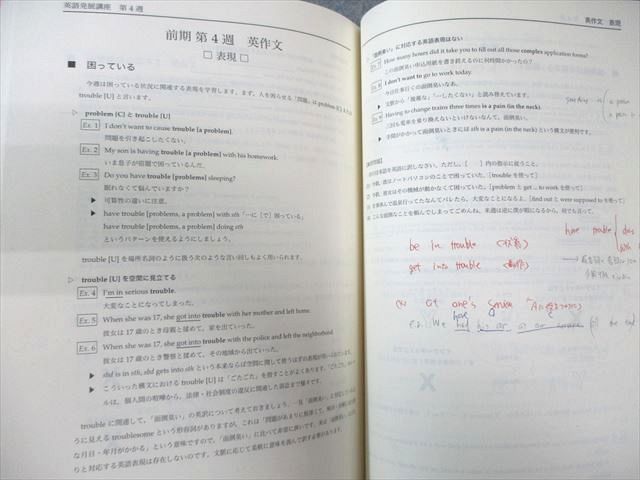 英語発展講座 第4週
前期 第4週 英作文
□ 表現 □
■ 困っている
今週は困っている状況に関連する表現を学習します。まず、人を困らせる「問題」は problem [C] または
trouble [U] と言います。
▷ problem [C] と trouble [U]
Ex. 1 I don't want to cause trouble [a problem].
問題を引き起こしたくない。
Ex. 2 My son is having trouble [a problem] with his homework.
いま息子が宿題で困っているんだ。
Ex. 3 Do you have trouble [problems] sleeping?
眠れなくて悩んでいますか？
▶ 可算性の違いに注意。
▶ have trouble [problems, a problem] with sth「…に〔で〕困っている」
have trouble [problems, a problem] doing sth
というパターンを使えるようにしましょう。
trouble [U] を場所名詞のように扱う次のような言い回しもよく用いられます。
▷ trouble [U] を空間に見立てる
Ex. 4 I'm in serious trouble.
大変なことになってしまった。
Ex. 5 When she was 17, she got into trouble with her mother and left home.
彼女は17歳のとき母親と揉めて、家を出ていった。
Ex. 6 When she was 17, she got into trouble with the police and left the neighborhood.
彼女は17歳のとき警察と揉めて、その地域から出ていった。
▶ sbd is in sth, sbd gets into sth という本来ならば空間に関して使うはずの表現が用いられ
▶ こういった構文における trouble [U] は「ごたごた」を指すことがよくあります。「ごたごた」
ルは、個人間の喧嘩から、法律・社会制度の違反に関連した訴訟まで様々です。
trouble に関連して、「面倒臭い」の英訳について考えておきましょう。一見「面倒臭い」に対応している
うに見える troublesome という形容詞がありますが、これは「問題があまりに煩雑で
な月日・年月がかかる」という意味ですので、「面倒臭い」に比べて非常に硬いです。実は「面倒臭い」
りと対応する英語表現は存在しないのです。文脈に応じて柔軟に意味を汲んで訳す必要があります。
英作文 表現
「面倒臭い」に対応する英語表現はない
Ex. 7 How many hours did it take you to fill out all those complex application forms?
この面倒臭い申込用紙を書き終えるのに何時間かかったの？
Ex. 8 I don't want to go to work today.
今日仕事行くの面倒臭いなあ。
▶ 文脈から「複雑な」「…したくない」と読み替えています。
Ex. 9 Having to change trains three times is a pain (in the neck).
三回も電車を乗り換えないといけないなんて、面倒臭い。
▶ 手間がかかって面倒臭いときには sth is a pain (in the neck) という構文が便利です。
次の日本語を英語に訳しなさい。ただし、〔 〕内の指示に従うこと。
今朝、僕はノートパソコンのことで困っていた。〔trouble を使って〕
今朝、彼女はその機械が動かなくて困っていた。〔problem と get ... to work を使って〕
〔find out と were supposed to を使って〕
こんな面倒なことを頼んでしまってごめんね。来週は逆に僕が暇になるから、何でも言って。
be in trouble 〈状態〉
get into trouble 〈動作〉
have trouble
doing
with
at one's service
e.g. We